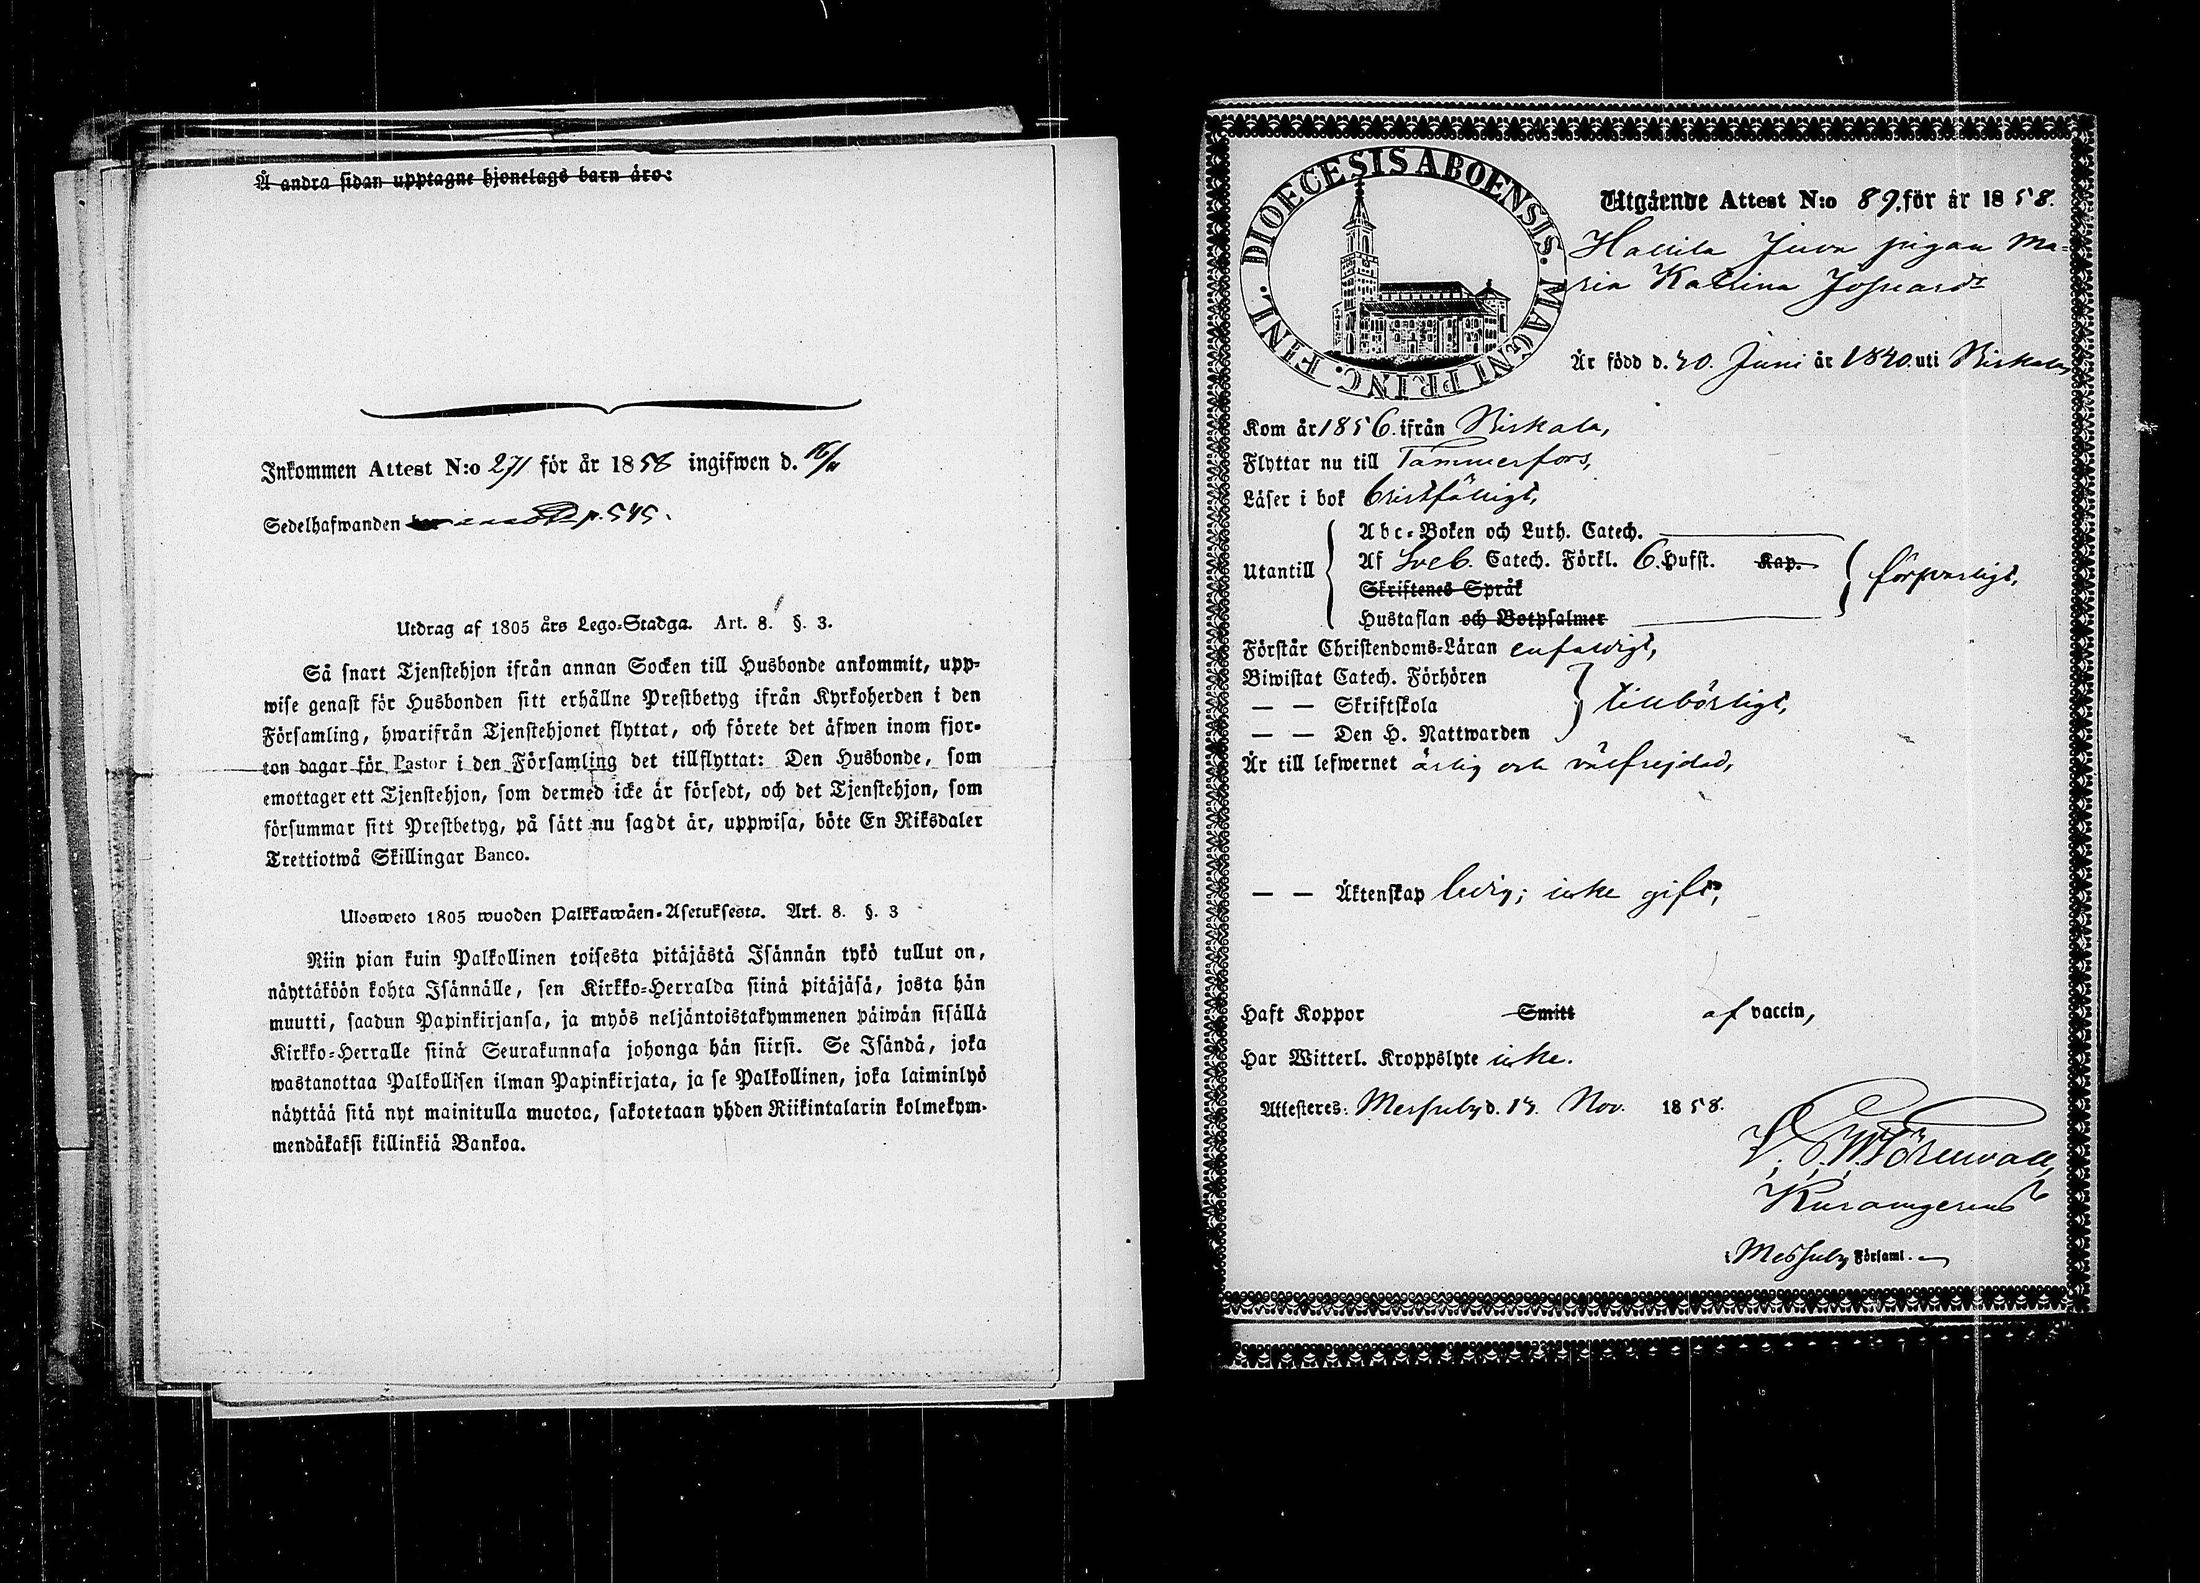 Å andra sidan upptagne hjonelags barn äro:
Inkommen Attest N:o 271 för år 1858 ingifwen d. 16/11
Sedelhafwanden p. 545.
Utdrag af 1805 års Lego-Stadga. Art. 8. §. 3.
Så snart Tjenstehjon ifrån annan Socken till Husbonde ankommit, upp-
wise genast för Husbonden sitt erhållne Prestbetyg ifrån Kyrkoherden i den
Församling, hwarifrån Tjenstehjonet flyttat, och förete det äfwen inom fjor-
ton dagar för Pastor i den Församling det tillflyttat: Den Husbonde, som
emottager ett Tjenstehjon, som dermed icke är försedt, och det Tjenstehjon, som
försummar sitt Prestbetyg, på sätt nu sagdt är, uppwisa, böte En Riksdaler
Trettiotwå Skillingar Banco.
Ulosweto 1805 wuoden Palkkawäen-Asetuksesta. Art. 8. §. 3
Niin pian kuin Palkollinen toisesta pitäjästä Isännän tykö tullut on,
näyttäköön kohta Isännälle, sen Kirkko-Herralda siinä pitäjäsä, josta hän
muutti, saadun Papinkirjansa, ja myös neljäntoistakymmenen päiwän sisällä
Kirkko-Herralle siinä Seurakunnasa johonga hän siirsi. Se Isändä, joka
wastanottaa Palkollisen ilman Papinkirjata, ja se Palkollinen, joka laiminlyö
näyttää sitä nyt mainitulla muotoa, sakotetaan yhden Riikintalarin kolmekym-
mendäkaksi killinkiä Bankoa.
DIOECESIS ABOENSIS. MAGNI PRINC. FINL.
Utgående Attest N:o 89. för år 1858.
Hallila Juva pigan Ma-
ria Katrina Josuasdr
Är född d. 20. Juni år 1840. uti Birkala,
Kom år 1856. ifrån Birkala,
Flyttar nu till Tammerfors,
Läser i bok bristfälligt,
Abc-Boken och Luth. Catech.
Utantill Af Sveb. Catech. Förkl. 6. Hufst. Kap. försvarligt,
Skriftenes Språk
Hustaflan och Botpsalmer
Förstår Christendoms-Läran enfaldigt,
Biwistat Catech. Förhören
— — Skriftskola tillbörligt,
— — Den H. Nattwarden
Är till lefwernet ärlig och välfrejdad,
— — Äktenskap ledig; icke gift,
Haft Koppor Smitt af vaccin,
Har Witterl. Kroppslyte icke.
Attesteras: Messuby d. 13. Nov. 1858.
Messuby Församl.